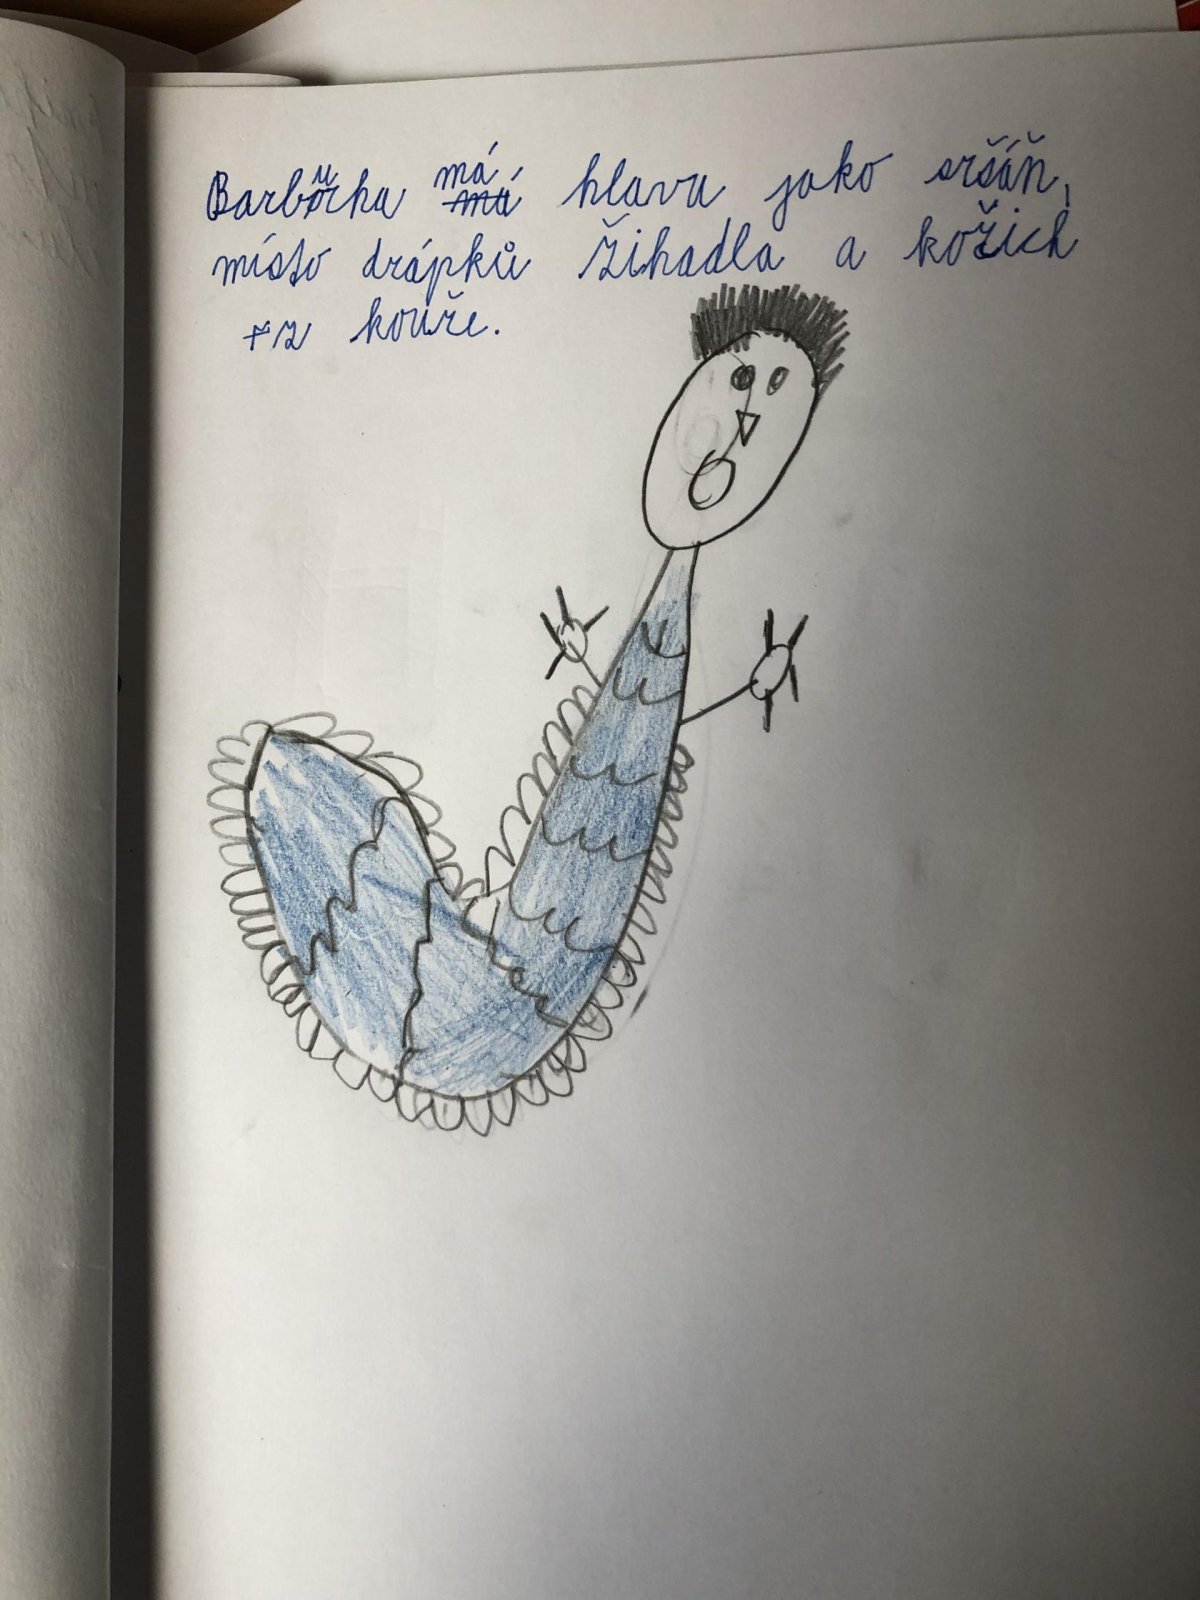 Barburka má má hlavu jako sršáň,
místo drápků žihadla a kožich
z kouře.